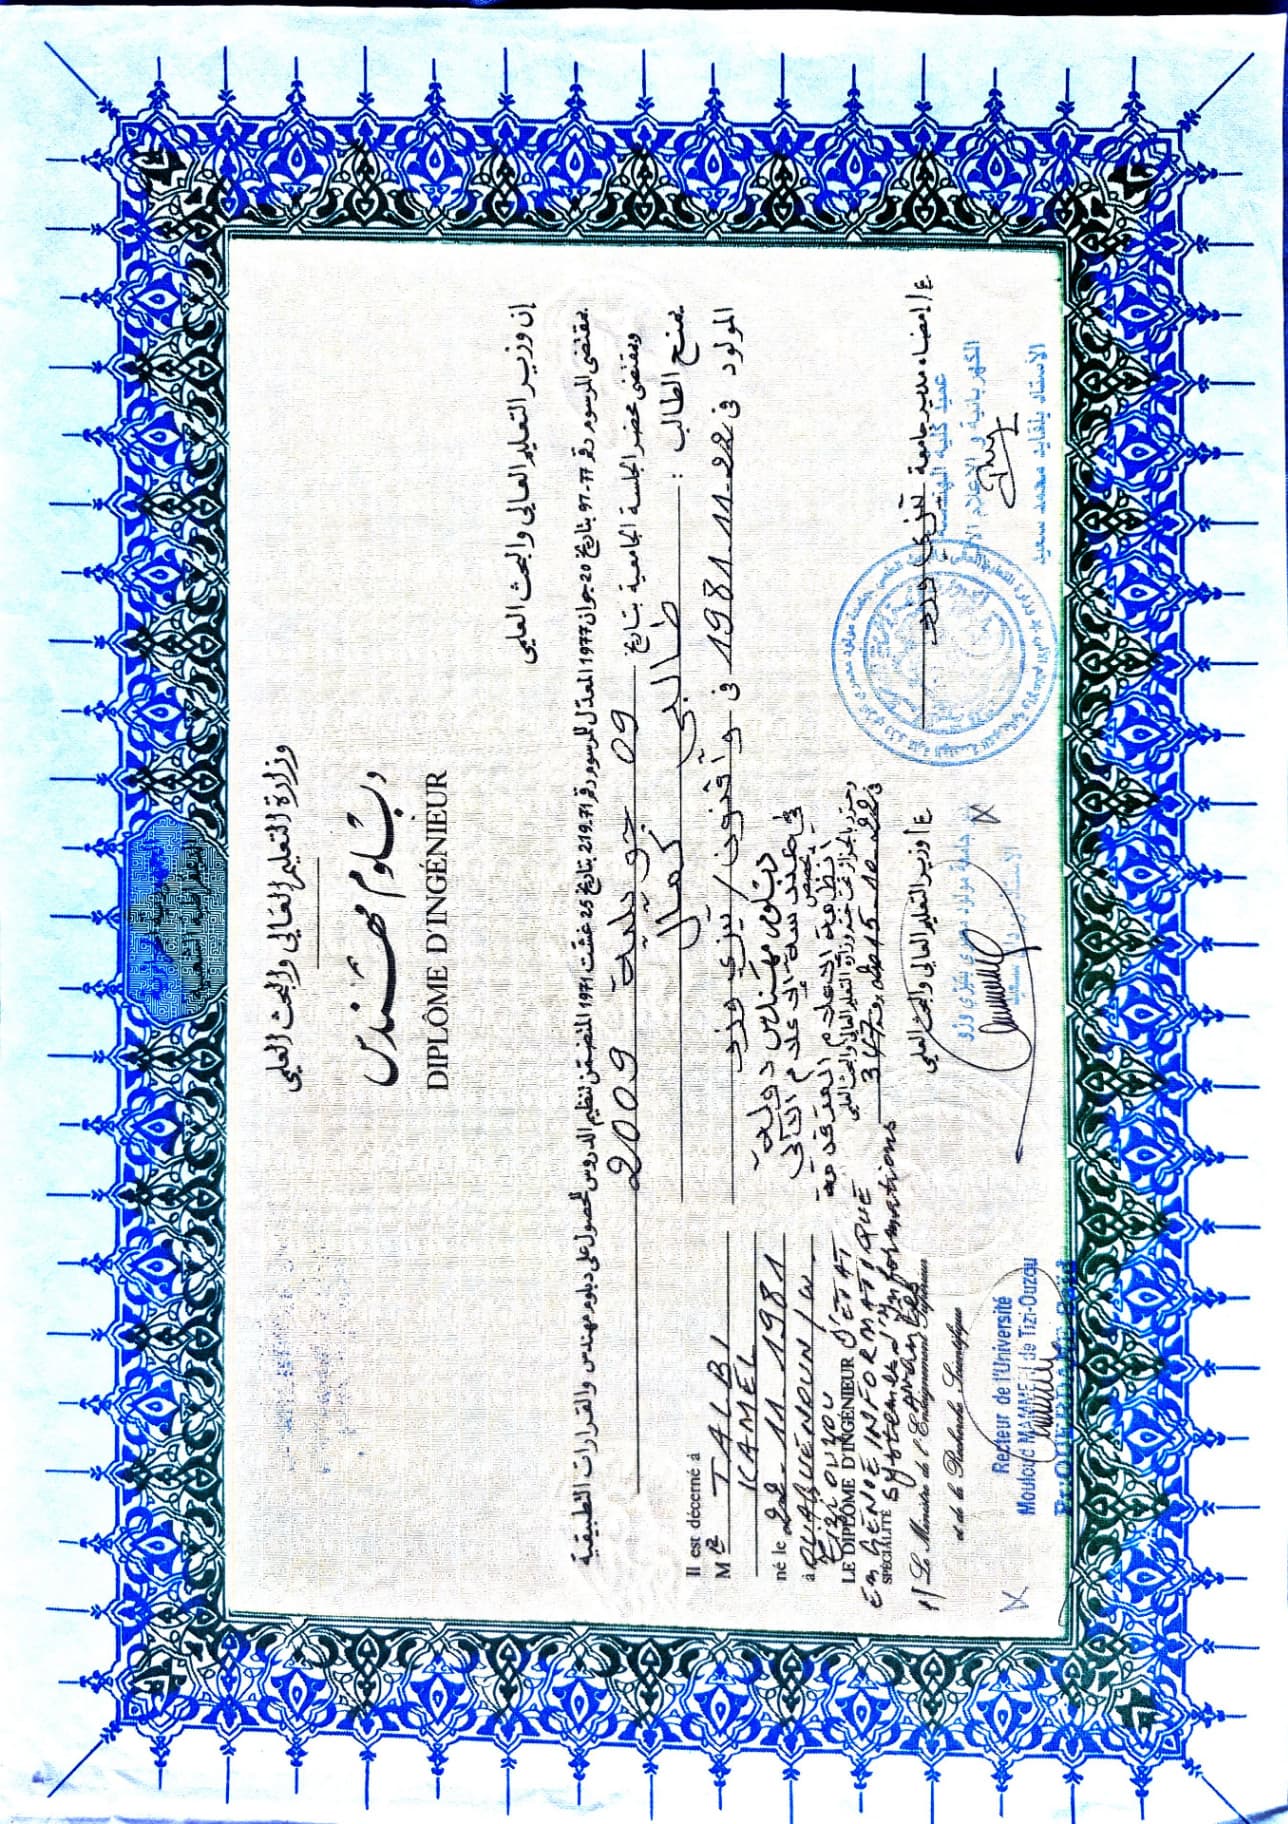 الجمهورية الجزائرية
الديمقراطية الشعبية
وزارة التعليم العالي والبحث العلمي
دبلوم مهندس
DIPLÔME D'INGÉNIEUR
إن وزير التعليم العالي والبحث العلمي
بمقتضى المرسوم رقم 77-97 بتاريخ 20 جوان 1977 المعدل للمرسوم رقم 71-219 بتاريخ 25 غشت 1971 المتضمن تنظيم الدروس للحصول على دبلوم مهندس والقرارات التطبيقية
وبمقتضى محضر الجلسة الجامعية بتاريخ 09 جويلية 2009
يمنح الطالب : طالبي كمال
المولود في 22-11-1981 في واقنون / تيزي وزو
دبلوم مهندس دولة
في هندسة الإعلام الآلي
تخصص أنظمة الإعلام المتقدمة
وحرر بالجزائر تحت عدد وزارة التعليم العالي والبحث العلمي
Il est décerné à
M R TALBI
KAMEL
né le 22-11-1981
à OUAGUENOUN / W.
TIZI OUZOU
LE DIPLÔME D'INGENIEUR D'ÉTAT
En GÉNIE INFORMATIQUE
SPÉCIALITÉ Systèmes d'Informations
Avancées
P/ Le Ministre de l'Enseignement Supérieur
et de la Recherche Scientifique
Recteur de l'Université
Mouloud MAMMERI de Tizi-Ouzou
ع/ وزير التعليم العالي والبحث العلمي
جامعة مولود معمري بتيزي وزو
ع/ إمضاء مدير جامعة تيزي وزو
عميد كلية الهندسة
الكهربائية و الإعلام الآلي
الأستاذ بلقايد محمد سعيد